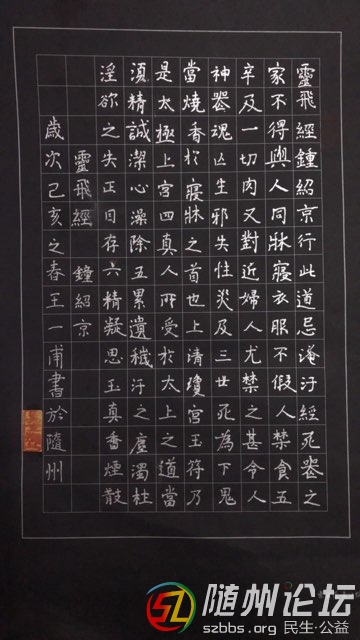 靈飛經鍾紹京行此道忌淹汙經死器之
家不得與人同牀寢衣服不假人禁食五
辛及一切肉又對近婦人尤禁之甚令人
神器魂亡生邪失性災及三世死為下鬼
當燒香於寢牀之首也上清瓊宮玉符乃
是太極上宮四真人所受於太上之道當
須精誠潔心澡除五累遺穢汙之塵濁杜
淫欲之失正目存六精凝思玉真香煙散
靈飛經 鐘紹京
歲次己亥之春王一甫書於隨州
随州论坛
szbbs.org 民生·公益